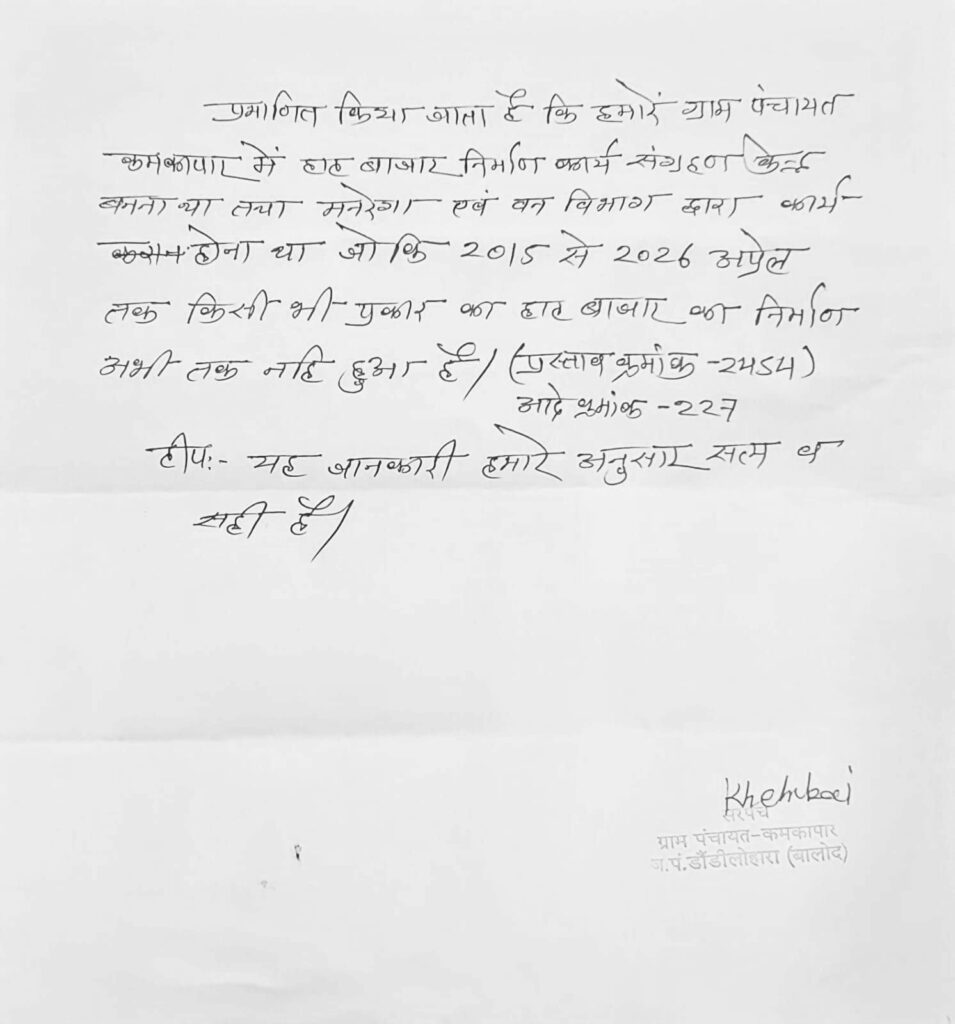 प्रमाणित किया जाता है कि हमारे ग्राम पंचायत
कमकापार में हाट बाजार निर्माण कार्य संग्रहण केन्द्र
बनना था तथा मनरेगा एवं वन विभाग द्वारा कार्य
होना था जो कि 2015 से 2026 अप्रेल
तक किसी भी प्रकार का हाट बाजार का निर्माण
अभी तक नहि हुआ है। (प्रस्ताव क्रमांक -2454)
आदे क्रमांक -227
टीपः- यह जानकारी हमारे अनुसार सत्य व
सही है।
सरपंच
ग्राम पंचायत-कमकापार
ज.पं.डौंडीलोहारा (बालोद)